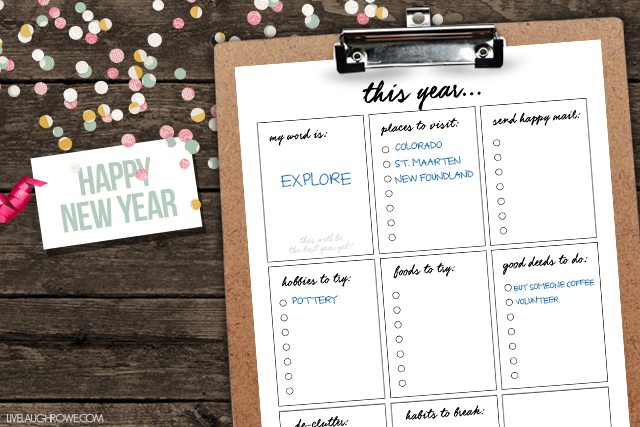 HAPPY
NEW YEAR
this year...
my word is:
EXPLORE
this will be
the best year yet!
places to visit:
COLORADO
ST. MAARTEN
NEW FOUNDLAND
send happy mail:
hobbies to try:
POTTERY
foods to try:
good deeds to do:
BUY SOMEONE COFFEE
VOLUNTEER
de-clutter:
habits to break:
LIVELAUGHROWE.COM